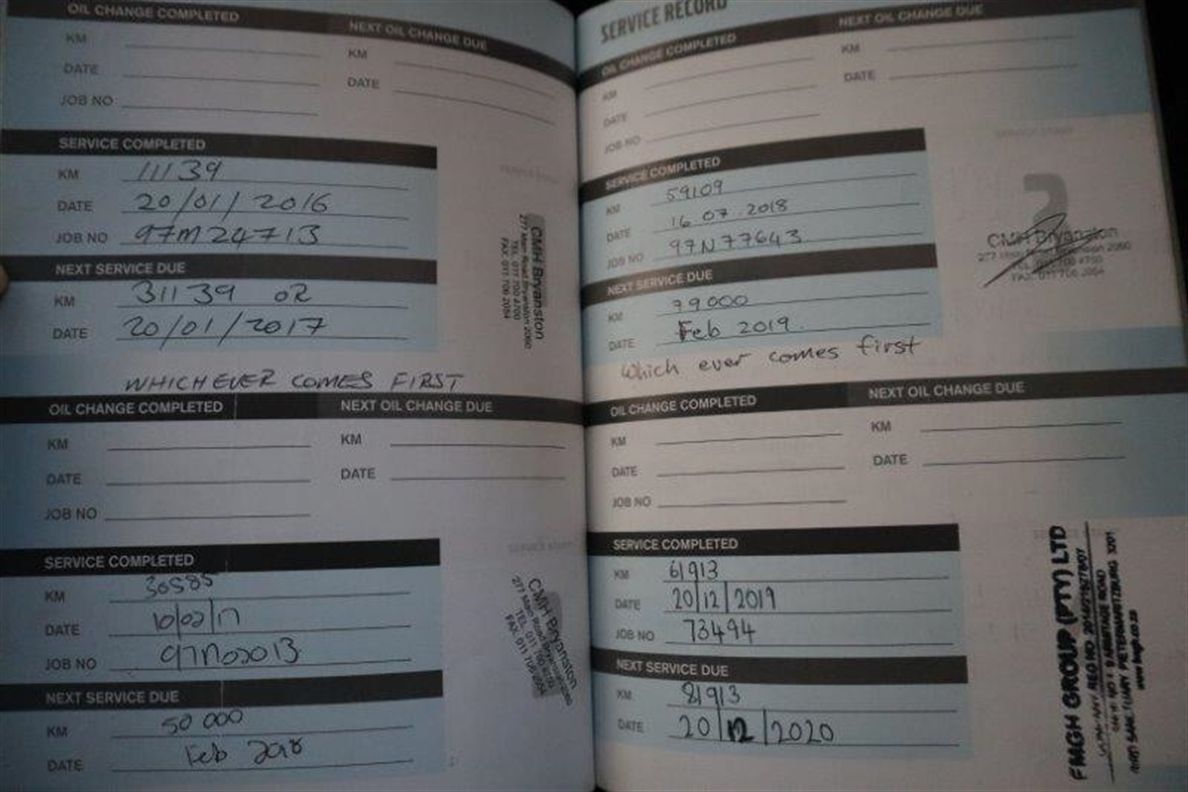 OIL CHANGE COMPLETED NEXT OIL CHANGE DUE
KM KM
DATE DATE
JOB NO
SERVICE COMPLETED
KM 11139
DATE 20/01/2016
JOB NO 97M24713
NEXT SERVICE DUE
KM 31139 OR
DATE 20/01/2017
WHICHEVER COMES FIRST
CMH Bryanston
277 Main Road Bryanston 2060
TEL: 011 700 4700
FAX: 011 706 2054
OIL CHANGE COMPLETED NEXT OIL CHANGE DUE
KM KM
DATE DATE
JOB NO
SERVICE COMPLETED
KM 30585
DATE 10/02/17
JOB NO
NEXT SERVICE DUE
KM 50 000
DATE Feb 2018
CMH Bryanston
277 Main Road Bryanston 2060
TEL: 011 700
FAX: 011 706 2054
SERVICE RECORD
OIL CHANGE COMPLETED NEXT OIL CHANGE DUE
KM KM
DATE DATE
JOB NO
SERVICE COMPLETED
KM 59109
DATE 16.07.2018
JOB NO 97N77643
NEXT SERVICE DUE
KM 79000
DATE Feb 2019.
Which ever comes first
CMH Bryanston
277 Main Bryanston 2060
TEL: 011 700 4700
FAX: 011 706 2054
OIL CHANGE COMPLETED NEXT OIL CHANGE DUE
KM KM
DATE DATE
JOB NO
SERVICE COMPLETED
KM 61913
DATE 20/12/2019
JOB NO 73494
NEXT SERVICE DUE
KM 81913
DATE 20/12/2020
FMGH GROUP (PTY) LTD
COMPANY REG NO
ARMITAGE ROAD
PIETERMARITZBURG 3201